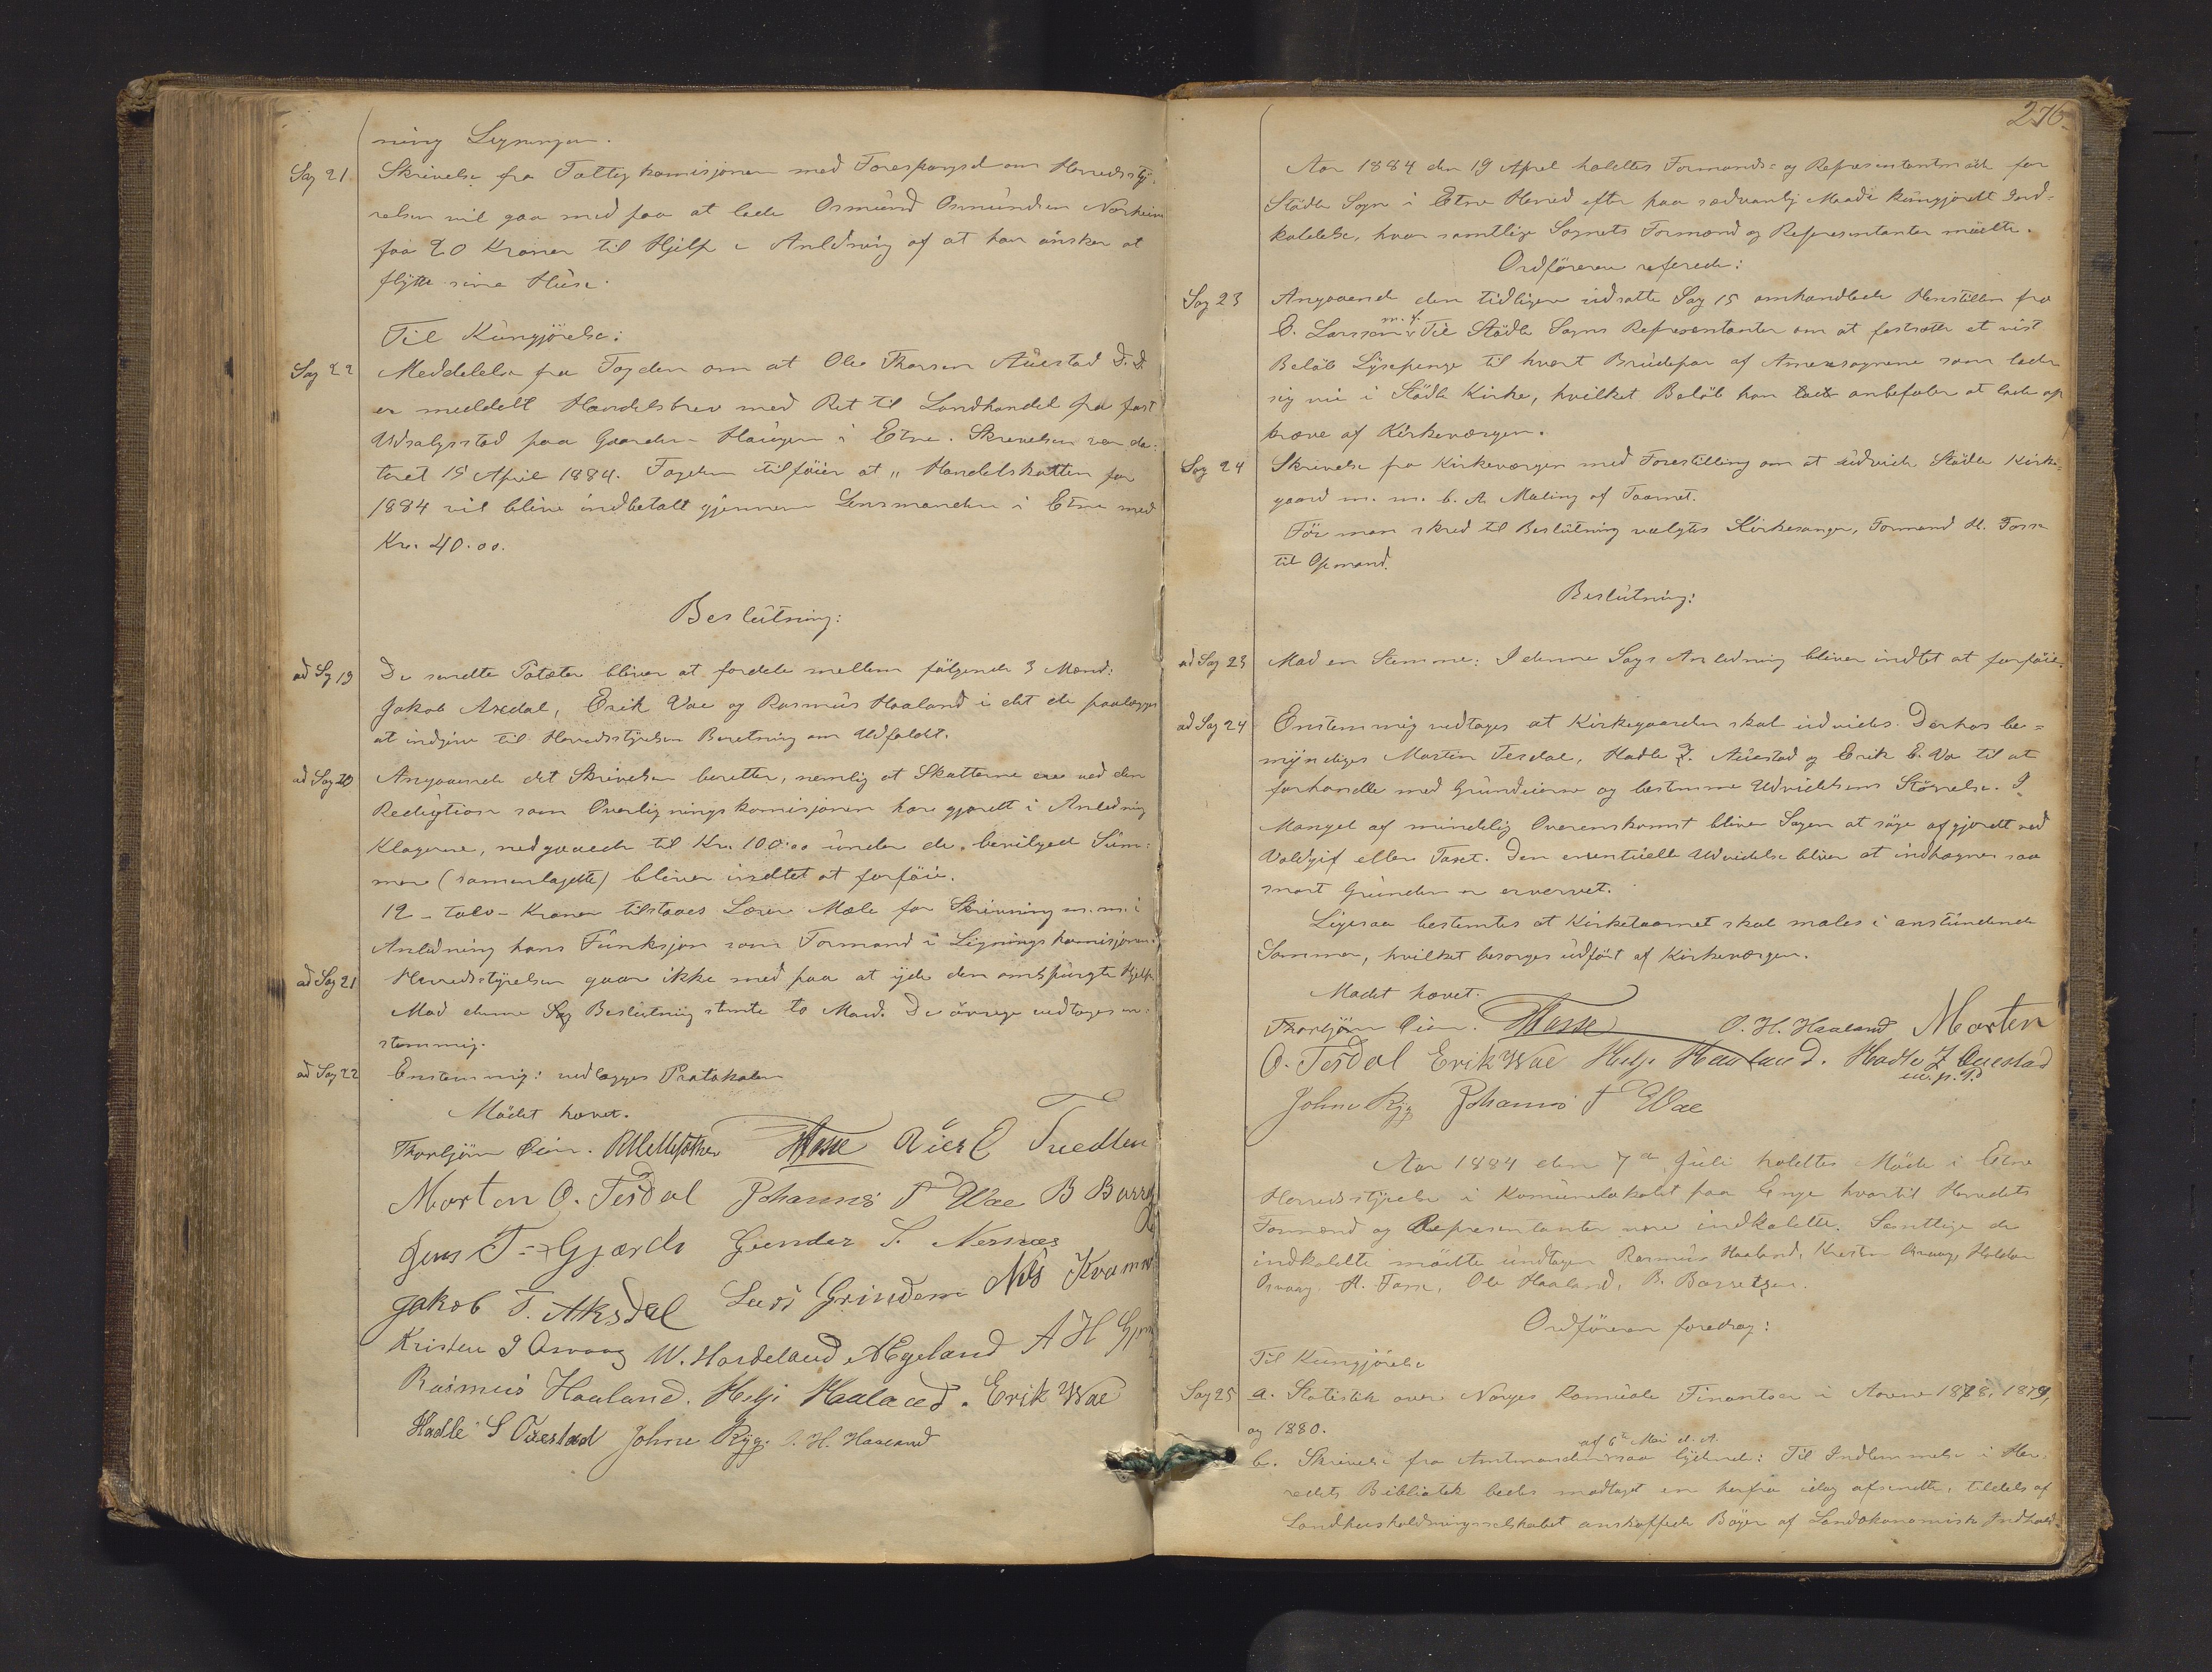 ning Ligningen.
Sag 21 Skrivelse fra Fattigkomisjonen med Forespørgsel om Herredssty-
relsen vil gaa med paa at lade Osmund Osmundsen Norheim
faa 20 Kroner til Hjelp i Anledning af at han ønsker at
flytte sine Huse.
Til Kungjørelse:
Sag 22 Meddelelse fra Fogden om at Ole Thorsen Auestad D. D.
er meddelt Handelsbrev med Ret til Landhandel fra fast
Udsalgsstad paa Gaarden Haugen i Etne. Skrivelsen var da-
teret 15 April 1884. Fogden tilføier at „Handelskatten for
1884 vil blive indbetalt gjennem Lensmanden i Etne med
Kr. 40.00.
Beslutning:
ad Sag 19 De sendte Potæter bliver at fordele mellem følgende 3 Mænd:
Jakob Axdal, Erik Vae og Rasmus Haaland i det de paalægges
at indgive til Herredsstyrelsen Beretning om Udfaldet.
ad Sag 20 Angaaende det Skrivelsen beretter, nemlig at Skatterne ere ved den
Reduktion som Overligningskomisjonen har gjordt i Anledning
Klagerne, nedgaaede til Kr. 100.00 under de bevilgede Sum-
mer (sammenlagdte) bliver indtet at forføie.
12 - tolv - Kroner tilstaaes Lærer Mæle for Skrivning m. m. i
Anledning hans Funksjon som Formand i Ligningskomisjonen.
ad Sag 21 Herredsstyrelsen gaar ikke med paa at yde den omspurgte Hjelp.
Mod denne Sag Beslutning stemte to Mand. De øvrige vedtoges en-
stemmig.
ad Sag 22 Enstemmig: vedlægges Protokolen
Mødet hævet.
Thorbjørn Øien. HFosse Tvedten
Morten O. Tesdal Johannes T Wae B Barre
Jens T. Gjærde Gunder S. Nernæs
Jakob T. Aksdal Lars Grindem Nils Kvam
Kristen J Osvaag W. Hardeland AEgeland A H
Rasmus Haaland. Helje Haaland. Erik Wae
Hadle S Øuestad Johne Ryg. O. H. Haaland
276.
Aar 1884 den 19 April holdtes Formands- og Representantmøde for
Stødle Sogn i Etne Herred efter paa sedvanlig Maade kungjordt Ind-
kaldelse, hvor samtlige Sognets Formænd og Representanter mødte.
Ordføreren referede:
Sag 23 Angaaende den tidligere udsatte Sag 15 omhandlede Henstillen fra
E. Larssen m. f. Til Stødle Sogns Representanter om at fastsætte et vist
Beløb Lysepenge til hvert Brudepar af Annexsognene som lader
sig vie i Stødle Kirke, hvilket Beløb han anbefaler at lade op
kræve af Kirkeværgen.
Sag 24 Skrivelse fra Kirkeværgen med Forestilling om at udvide Stødle Kirke-
gaard m. m. b. A. Maling af Taarnet.
Før man skred til Beslutning valgtes Kirkesanger, Formand H. Fosse
til Opmand.
Beslutning:
ad Sag 23 Mod en Stemme: I denne Sags Anledning bliver indtet at forføie.
ad Sag 24 Enstemmig vedtages at Kirkegaarden skal udvides. Derhos be-
myndiges Martin Tesdal, Hadle S. Auestad og Erik E. Va til at
forhandle med Grundeierne og bestemme Udvidelsens Størrelse. I
Mangel af mindelig Overenskomst bliver Sagen at søge afgjordt ved
Voldgift eller Taxt. Den eventuelle Udvidelse bliver at indhegnes saa
snart Grunden er ervervet.
Ligesaa bestemtes at Kirketaarnet skal males i anstundende
Sommer, hvilket besørges udført af Kirkeværgen.
Mødet hævet.
Thorbjørn Øien. HFosse O. H. Haaland Morten
O. Tesdal Erik Wae Helje Haaland. Hadle S Øuestad
m. p. P.
Johne Ryg Johannes T Wae
Aar 1884 den 7de Juli holdtes Møde i Etne
Herredsstyrelse i Komunelokalet paa Enge hvortil Herredets
Formænd og Representanter vare indkaldte. Samtlige de
indkaldte mødte undtagen Rasmus Haaland, Kristen Osvaag, Haldor
Osvaag H. Fosse, Ole Haaland, B. Barretzen.
Ordføreren foredrog:
Til Kungjørelse
Sag 25 a. Statistik over Norges Komunale Finantser i Aarene 1878, 1879,
og 1880.
b. Skrivelse fra Amtmanden af 6te Mai d. A. saa lydende: Til Indlemmelse i Her-
redets Bibliotek bedes modtaget en herfra idag afsendte, tildels af
Landhusholdningsselskabet anskaffede Bøger af Landøkonomisk Indhold.